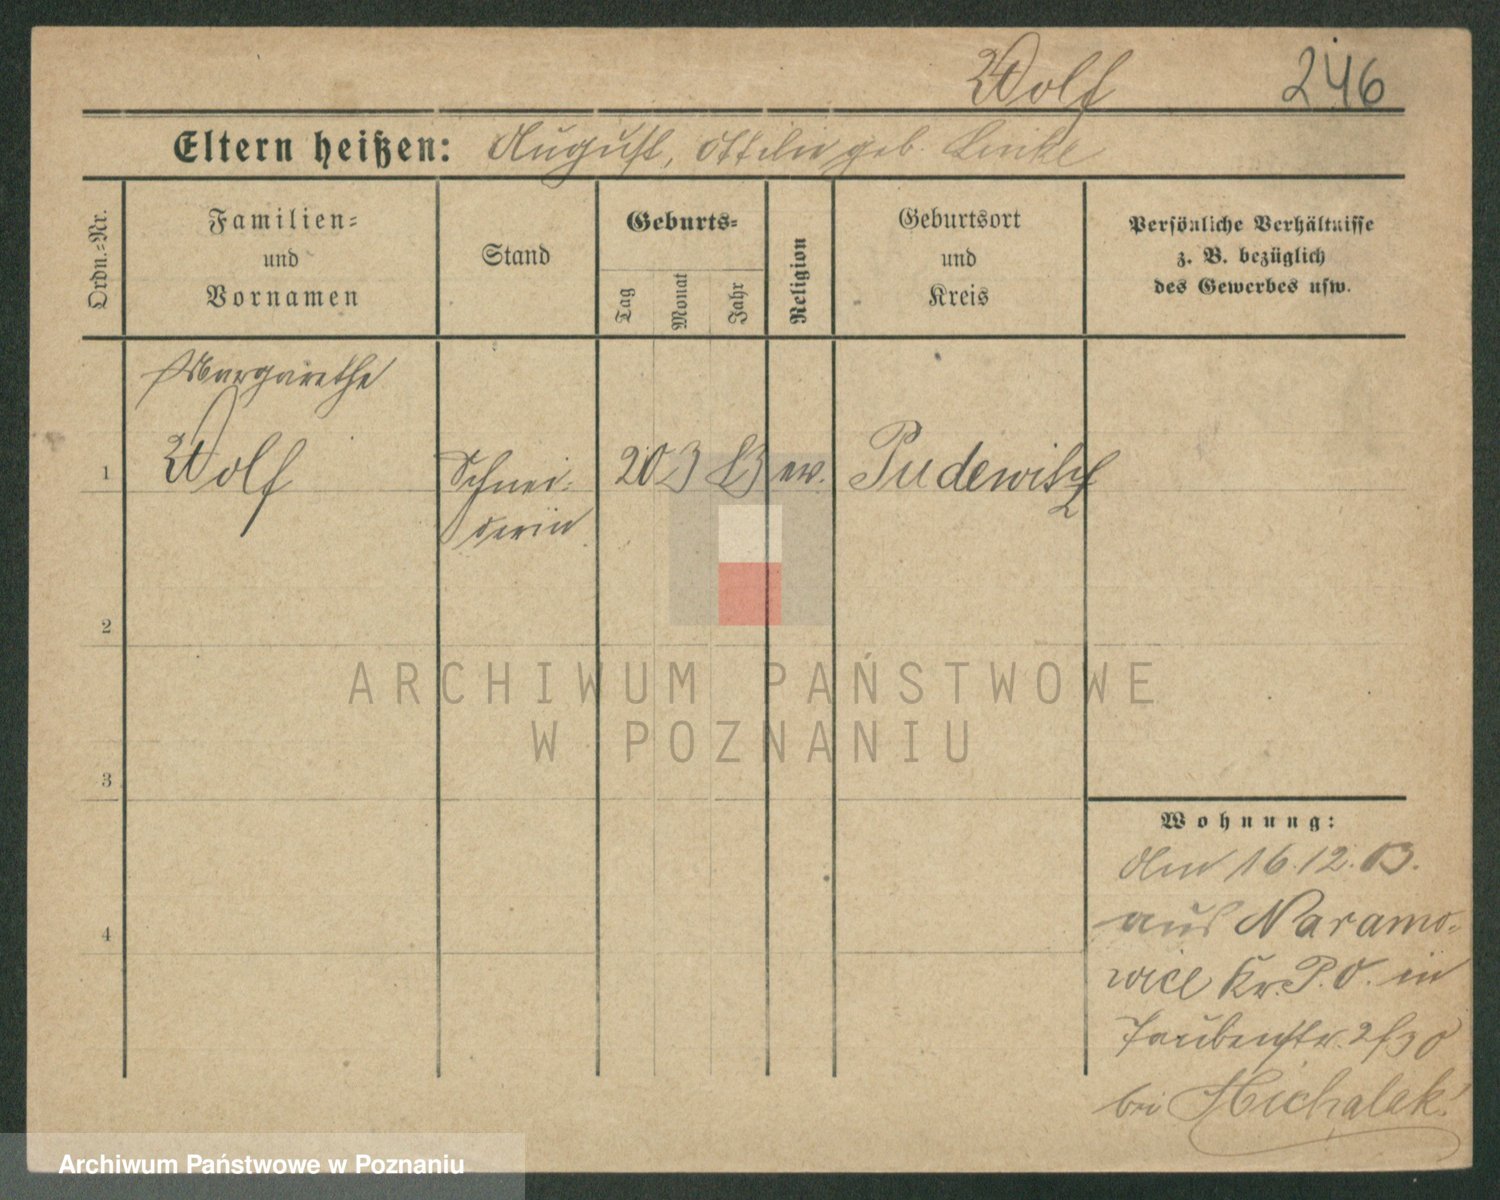 Wolf 246
Eltern heißen: August, Ottilie geb. Linke
Ordn.=Nr.
Familien=
und
Vornamen
Stand
Geburts=
Tag
Monat
Jahr
Religion
Geburtsort
und
Kreis
Persönliche Verhältnisse
z. B. bezüglich
des Gewerbes usw.
Margarethe
1 Wolf Schnei- 20 3 83 ev. Pudewitz
derin
2
3
4
Wohnung:
Am 16.12.03.
aus Naramo-
wice Kr. P.O. in
Taubenstr. 2/30
bei Michalak.
ARCHIWUM PAŃSTWOWE
W POZNANIU
Archiwum Państwowe w Poznaniu